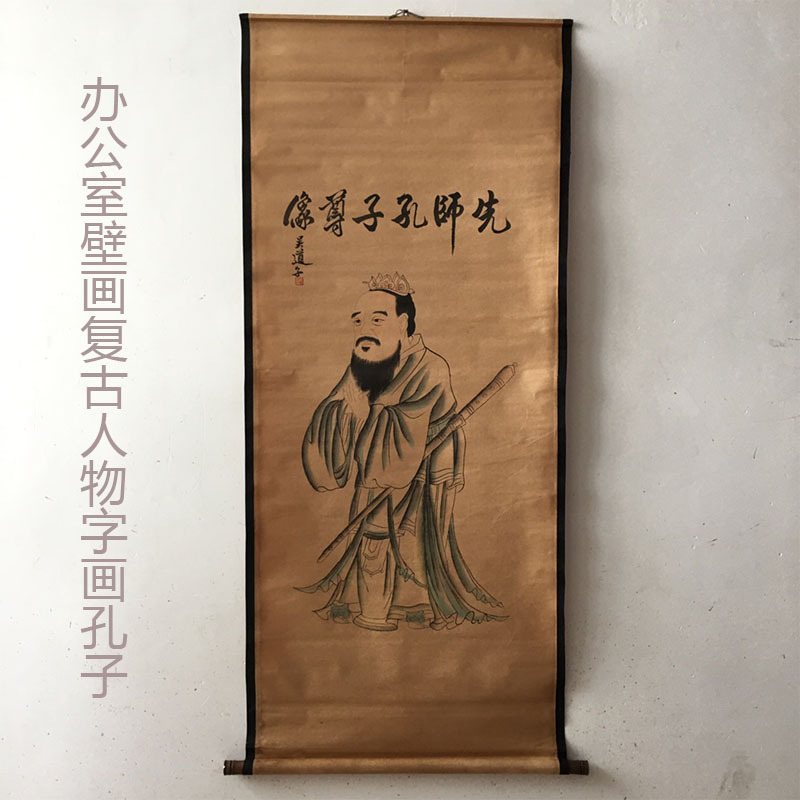 办公室壁画复古人物字画孔子
先師孔子尊像
吴道子